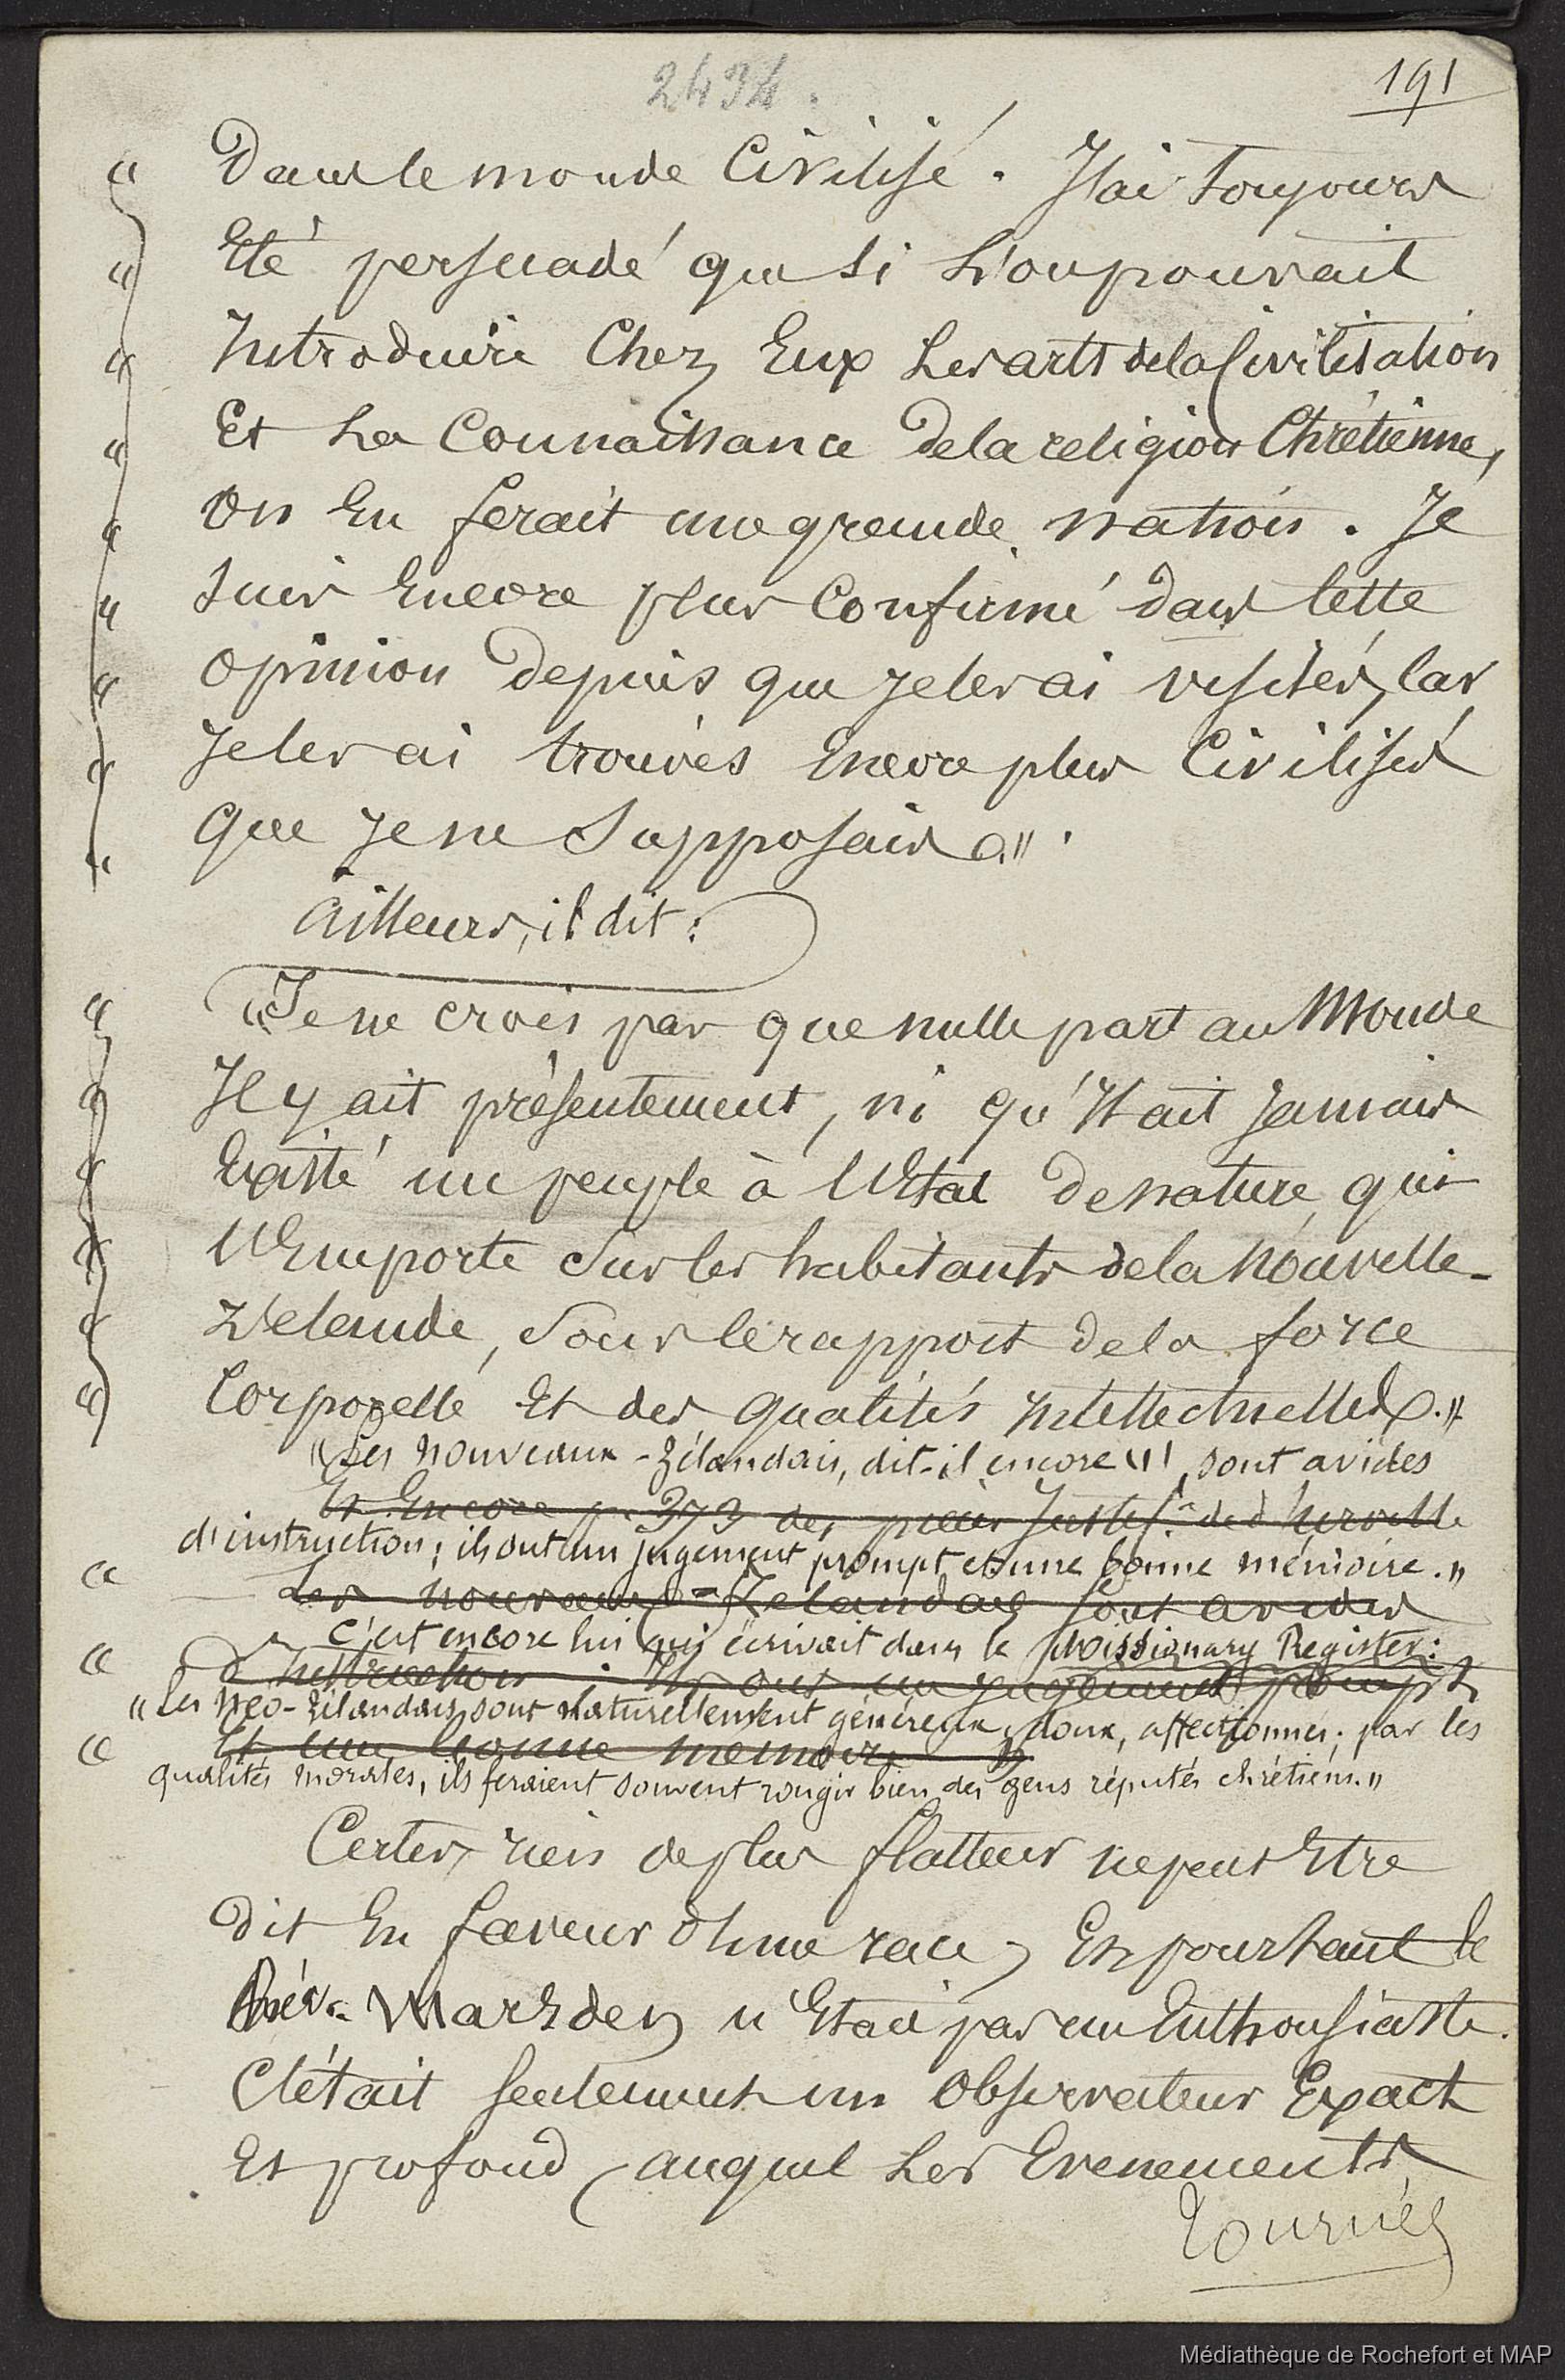 2434.
191
" Dans le monde Civilisé. J'ai Toujours
" Eté persuadé que Si L'on pouvait
" Introduire Chez Eux Les arts de la Civilisation
" Et La Connaissance De la religion Chrétienne,
" On En ferait une grande nation. Je
" Suis Encore plus Confirmé dans Cette
" Opinion Depuis que Je les ai visités, Car
" Je les ai trouvés Encore plus Civilisés
" Que Je ne Supposais ".
Ailleurs, il dit :
" "Je ne crois pas que nulle part au Monde
" Il y ait présentement, ni qu'Il ait Jamais
" Existé un peuple à L'Etat De nature, qui
" L'Emporte Sur les habitants de la Nouvelle-
" Zélande, Sous le rapport De la force
" Corporelle Et des Qualités Intellectuelles."
"Les Nouveaux-Zélandais, dit-il encore, sont avides
Et Encore p. 373 des pièces Justif. de d'Urville
d'instruction; ils ont un jugement prompt et une bonne mémoire."
" Les Nouveaux-Zelandais Sont avides
C'est encore lui qui écrivait dans le Missionary Register:
" d'Instruction; Ils ont un jugement prompt
"Les Néo-Zélandais sont naturellement généreux, doux, affectionnés; par les
" Et une bonne memoire "
qualités morales, ils feraient souvent rougir bien des gens réputés chrétiens."
Certes, rien de plus flatteur ne peut Etre
Dit En faveur D'une race, Et pourtant le
Rév. Marsden n'Etait pas un Enthousiaste.
C'était Seulement un Observateur Exact
Et profond, auquel Les Evenements
Tournés
Médiathèque de Rochefort et MAP